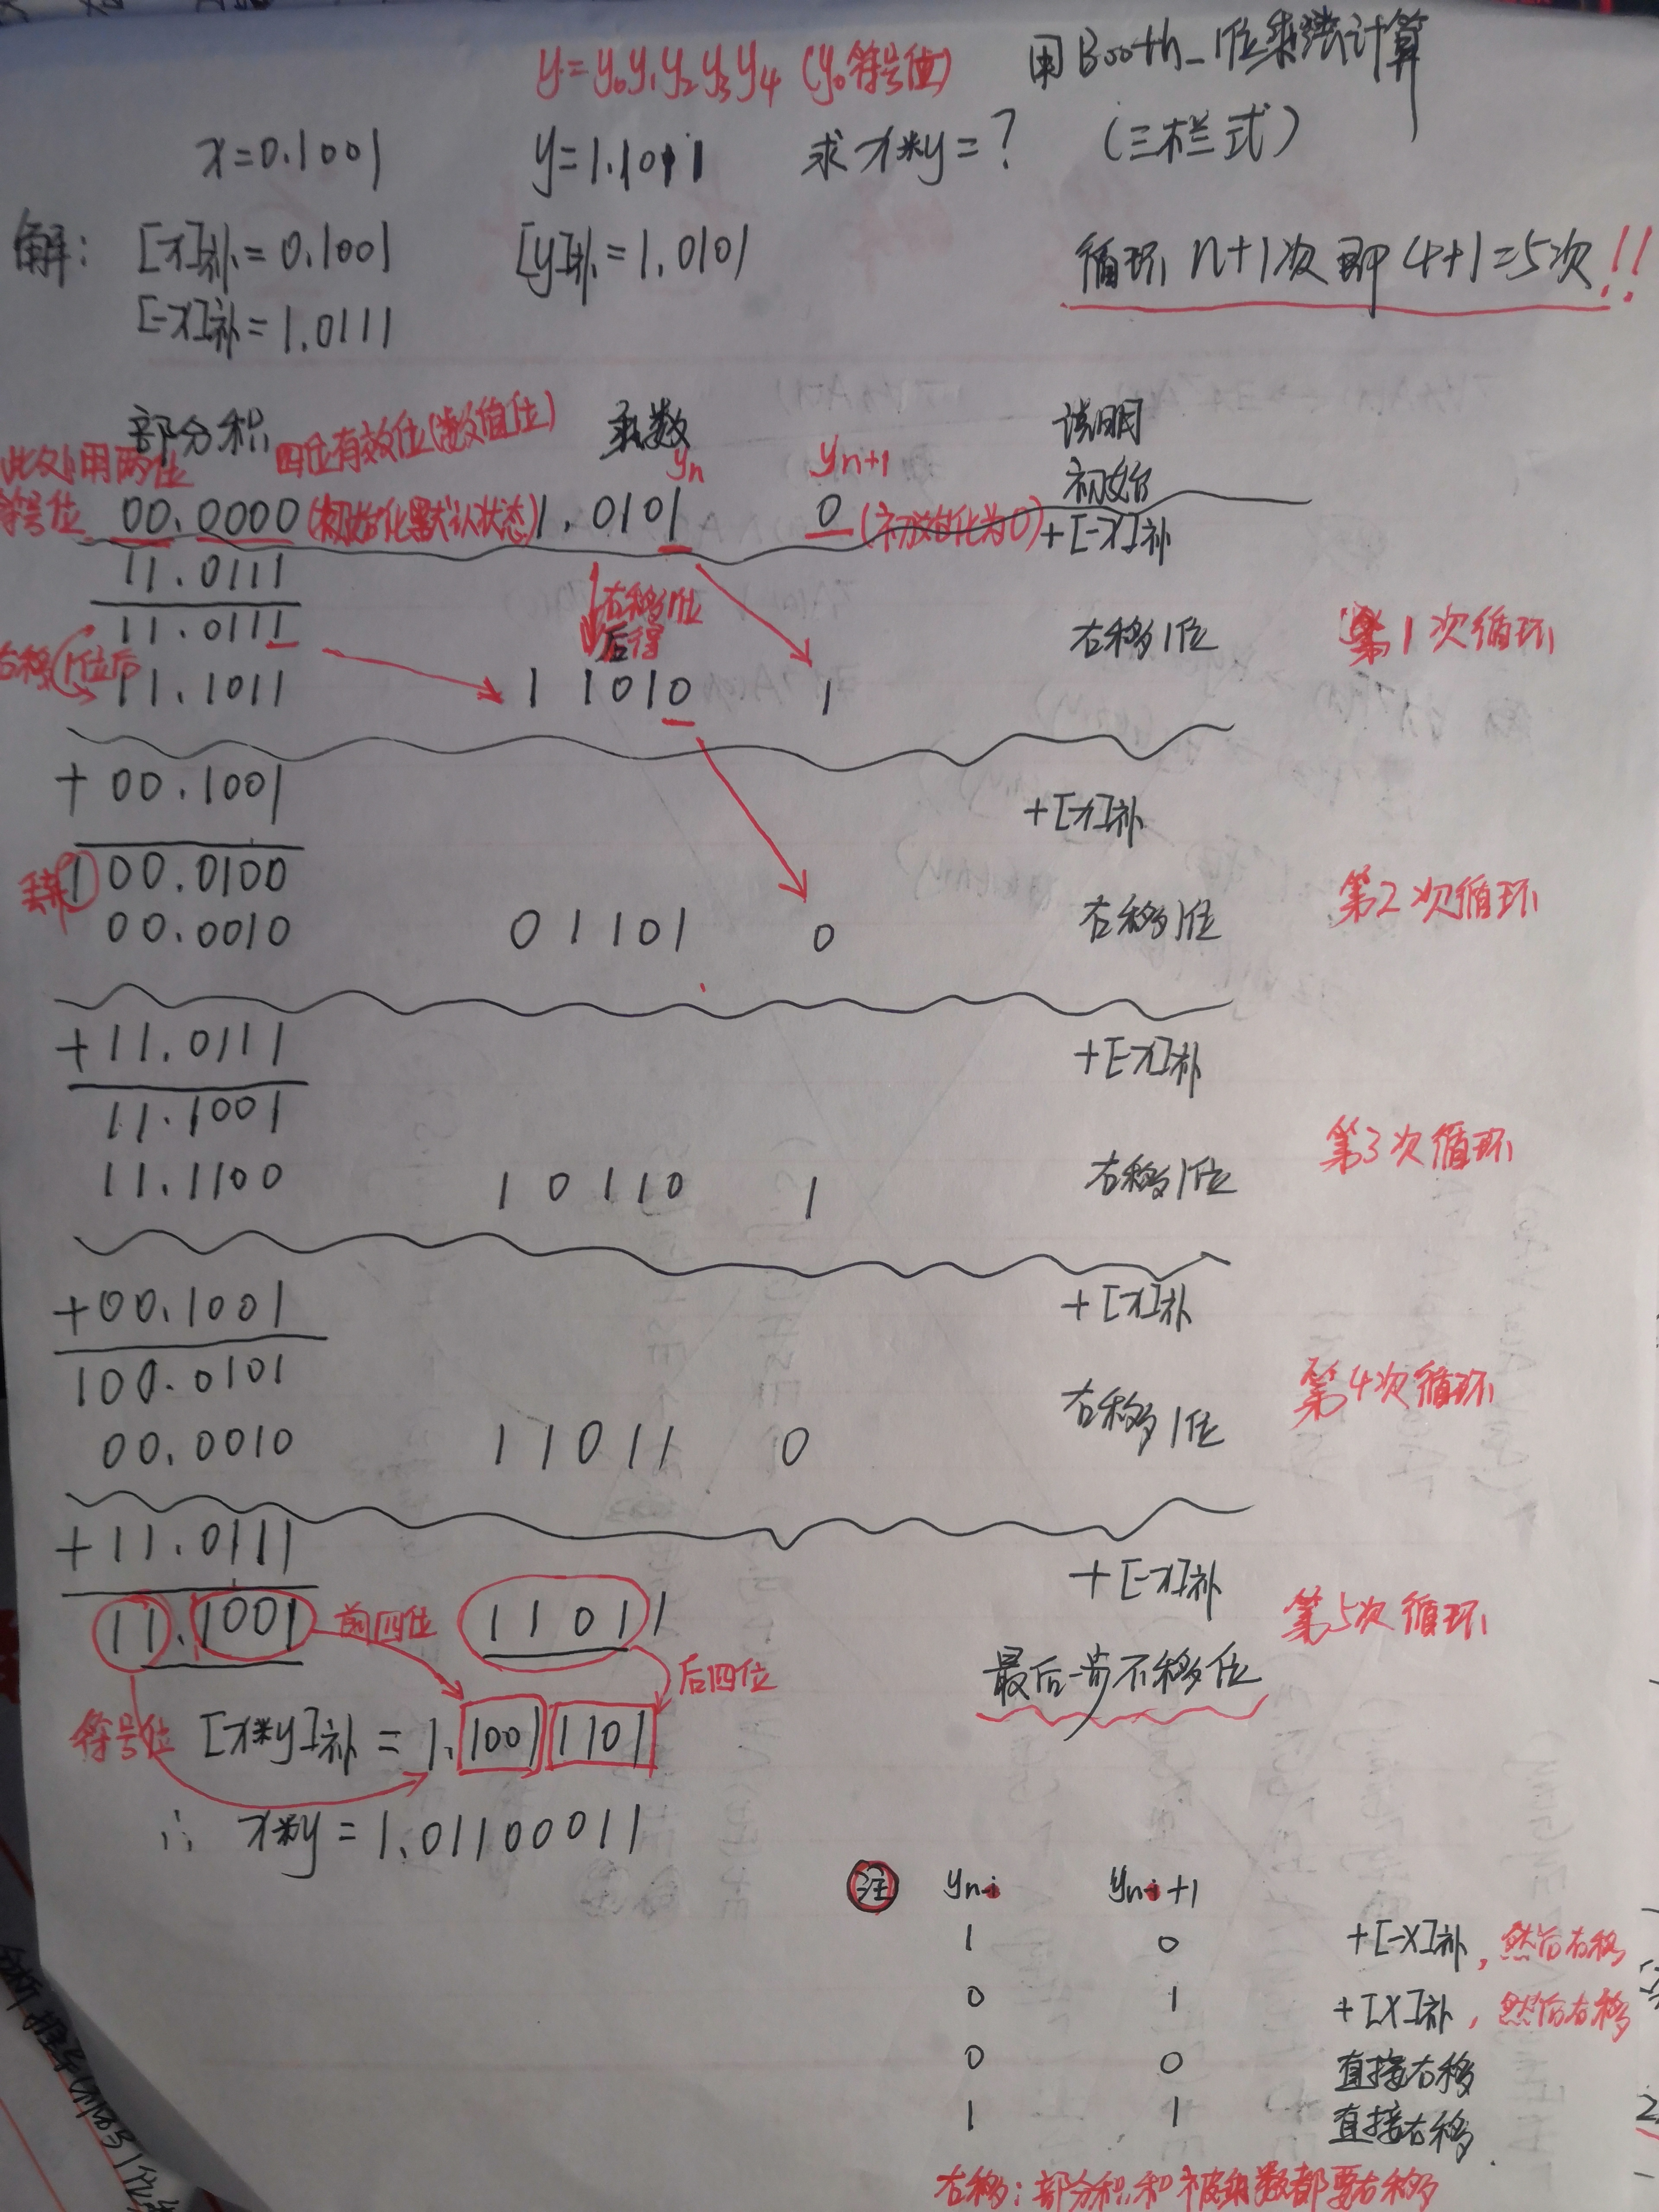 y=y₀y₁y₂y₃y₄ (y₀符号位) 用Booth_1位乘法计算
x=0.1001 y=1.1011 求x*y=? (三栏式)
解: [x]补=0.1001 [y]补=1.0101 循环n+1次即4+1=5次!!
[-x]补=1.0111
部分积 四位有效位(数值位) 乘数 说明
此处用两位 yn yn+1 初始
符号位 00.0000 (初始化默认状态) 1.0101 0 (初始化为0) +[-x]补
11.0111
11.0111 右移1位后得 右移1位 第1次循环
右移1位后 11.1011 1 1010 1
+00.1001 +[x]补
丢弃 100.0100
00.0010 01101 0 右移1位 第2次循环
+11.0111 +[-x]补
11.1001
11.1100 10110 1 右移1位 第3次循环
+00.1001 +[x]补
100.0101
00.0010 11011 0 右移1位 第4次循环
+11.0111 +[-x]补
11.1001 前四位 11011 第5次循环
后四位 最后一步不移位
符号位 [x*y]补=1.10011101
∴ x*y=1.01100011
注 yn-i yn-i+1
1 0 +[-X]补,然后右移
0 1 +[X]补,然后右移
0 0 直接右移
1 1 直接右移.
右移:部分积和被乘数都要右移